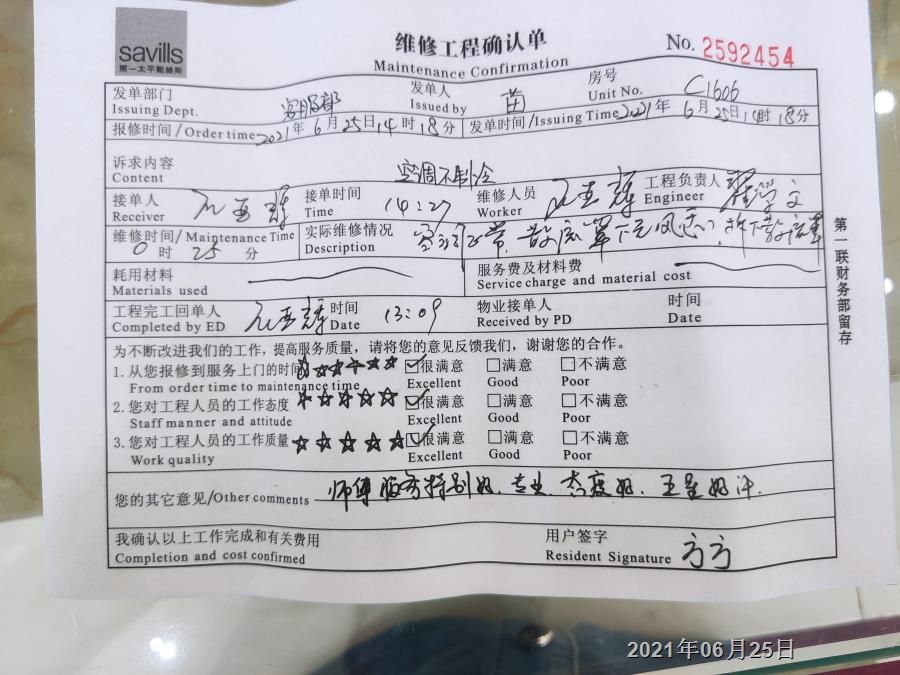 savills
第一太平戴维斯
维修工程确认单
Maintenance Confirmation
No. 2592454
发单部门 客服部 发单人 苗 房号 C1606
Issuing Dept. Issued by Unit No.
报修时间/Order time 2021年6月25日14时18分 发单时间/Issuing Time 2021年6月25日14时18分
诉求内容 空调不制冷
Content
接单人 接单时间 14:27 维修人员 工程负责人
Receiver Time Worker Engineer
维修时间/Maintenance Time 实际维修情况
0时25分 Description
耗用材料 服务费及材料费
Materials used Service charge and material cost
工程完工回单人 时间 13:09 物业接单人 时间
Completed by ED Date Received by PD Date
为不断改进我们的工作，提高服务质量，请将您的意见反馈我们，谢谢您的合作。
1.从您报修到服务上门的时间 ☆☆☆☆☆ ☑很满意 □满意 □不满意
From order time to maintenance time Excellent Good Poor
2.您对工程人员的工作态度 ☆☆☆☆☆ ☑很满意 □满意 □不满意
Staff manner and attitude Excellent Good Poor
3.您对工程人员的工作质量 ☆☆☆☆☆ ☑很满意 □满意 □不满意
Work quality Excellent Good Poor
您的其它意见/Other comments 师傅服务特别好、专业、态度好、五星好评.
我确认以上工作完成和有关费用 用户签字
Completion and cost confirmed Resident Signature 方方
第一联财务部留存
2021年06月25日